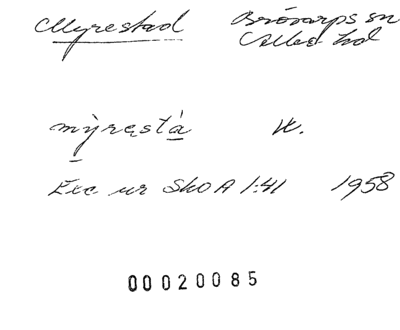 Myrestad Brösarps sn
Albo hd
mỳręstá K.
Exc ur SkOA 1:41 1958
00020085